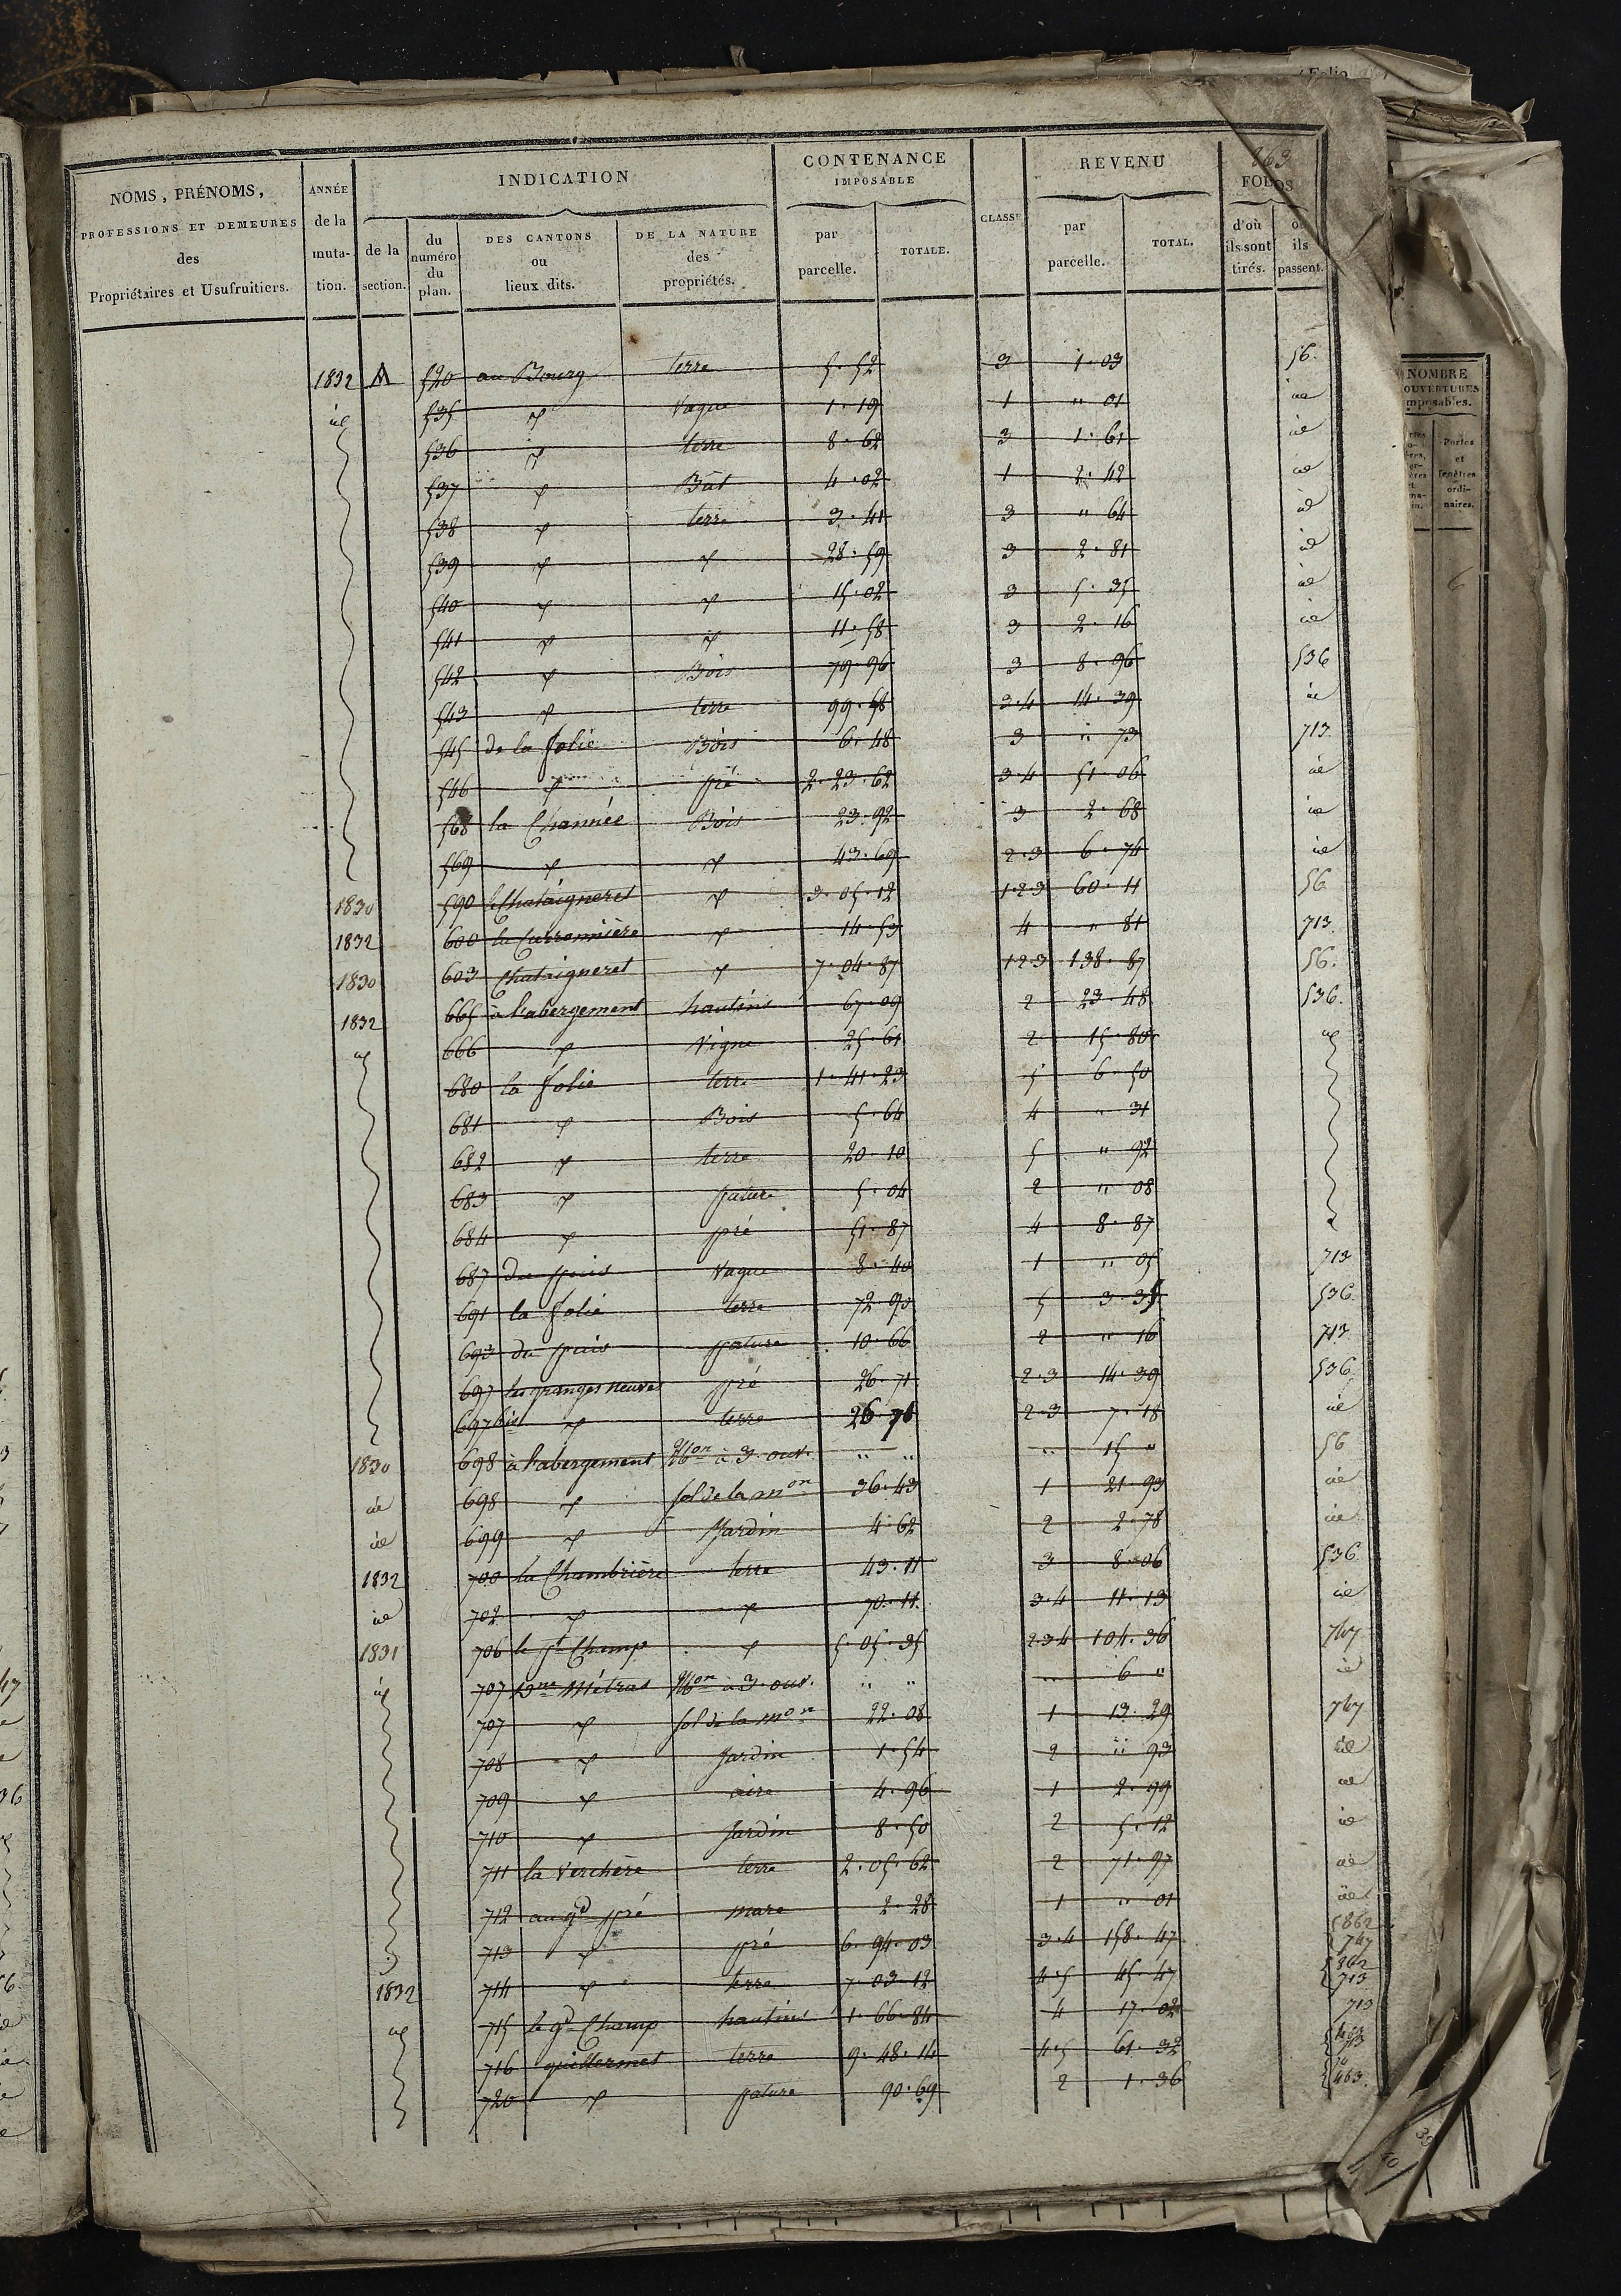 Folio
263
NOMS, PRÉNOMS, PROFESSIONS ET DEMEURES des Propriétaires et Usufruitiers.
ANNÉE de la mutation.
INDICATION
de la section.
du numéro du plan.
DES CANTONS ou lieux dits.
DE LA NATURE des propriétés.
CONTENANCE IMPOSABLE
par parcelle.
TOTALE.
CLASSE
REVENU
par parcelle.
TOTAL.
FOLIOS
d'où ils sont tirés.
où ils passent.
1832 A 520 au Bourg terre 5.52 3 1.03 56.
id 535 id Vague 1.19 1 " 01 id
536 id terre 8.62 3 1.61 id
537 id Bât 4.02 1 2.42 id
538 id terre 3.41 3 " 64 id
539 id id 28.59 3 2.81 id
540 id id 15.02 3 5.35 id
541 id id 11.58 3 2.16 id
542 id Bois 79.96 3 8.96 536
543 id terre 99.58 3.4 14.39 id
545 de la folie Bois 6.48 3 " 73 713
546 id pré 2.23.62 3.4 51.06 id
568 la Channée Bois 23.92 3 2.68 id
569 id id 43.69 2.3 6.74 id
1830 590 le Chataigneret id 3.05.12 1.2.3 60.11 56
1832 600 la Curronnière id 14.53 4 " 81 713
1830 603 Chataigneret id 7.04.87 1.2.3 138.87 56.
1832 665 à l'abergement hautins 67.09 2 23.48 536.
id 666 id Vigne 25.61 2 15.80 id
680 la folie terre 1.41.23 5 6.50
681 id Bois 5.64 4 " 31
682 id terre 20.10 5 " 92
683 id pature 5.04 2 " 08
684 id pré 51.87 4 8.87
687 du puis Vague 8.40 1 " 05 713
691 la folie terre 72.90 5 3.35 536
693 du puis pature 10.66 2 " 16 713
697 les granges neuves pré 26.71 2.3 14.39 536
697 bis id terre 26.76 2.3 7.18 id
1830 698 à l'abergement Mon à 3 ouv. " " " 15 " 56
id 698 id sol de la mon 36.43 1 21.93 id
id 699 id Jardin 4.62 2 2.78 id
1832 700 la Chambrière terre 43.11 3 8.06 536
id 702 id id 70.11 3.4 11.13 id
1831 706 le pt Champ id 5.05.35 2.3.4 104.36 747
id 707 Dne Métras Mon à 3 ouv. " " " 6 " id
707 id sol de la mon 22.08 1 13.29 747
708 id Jardin 1.54 2 " 93 id
709 id aire 4.96 1 2.99 id
710 id Jardin 8.50 2 5.12 id
711 la Verchère terre 2.05.62 2 71.97 id
712 au gd pré mare 2.28 1 " 01 id
713 id pré 6.94.03 3.4 158.47 862 747
1832 714 id terre 7.03.12 4.5 45.47 862 713
id 715 le gd Champ hautins 1.66.84 4 17.02 713
716 guillermet terre 9.48.14 4.5 61.32
720 id pature 90.69 2 1.36 463.
NOMBRE
OUVERTURES
imposables.
Portes et fenêtres ordinaires.
6